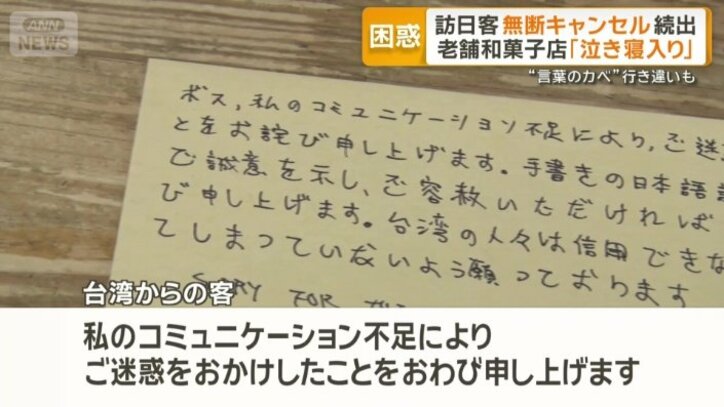 ANN
NEWS
困惑
訪日客 無断キャンセル 続出
老舗和菓子店「泣き寝入り」
“言葉のカベ”行き違いも
ボス,私のコミュニケーション不足により,ご迷
とをお詫び申し上げます。手書きの日本語
で誠意を示し、ご容赦いただければ
び申し上げます。台湾の人々は信用できな
てしまっていないよう願っております
SORRY FOR
台湾からの客
私のコミュニケーション不足により
ご迷惑をおかけしたことをおわび申し上げます